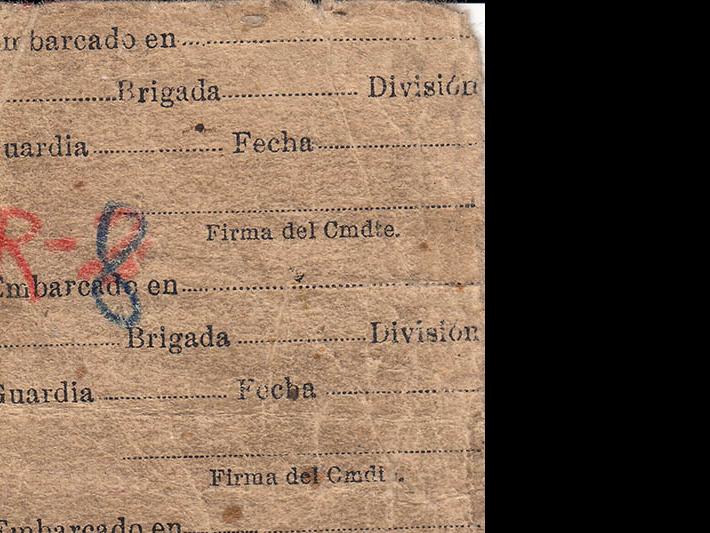 Embarcado en
Brigada División
uardia Fecha
R-8
Firma del Cmdte.
Embarcado en
Brigada División
Guardia Fecha
Firma del Cmdt .
Embarcado en